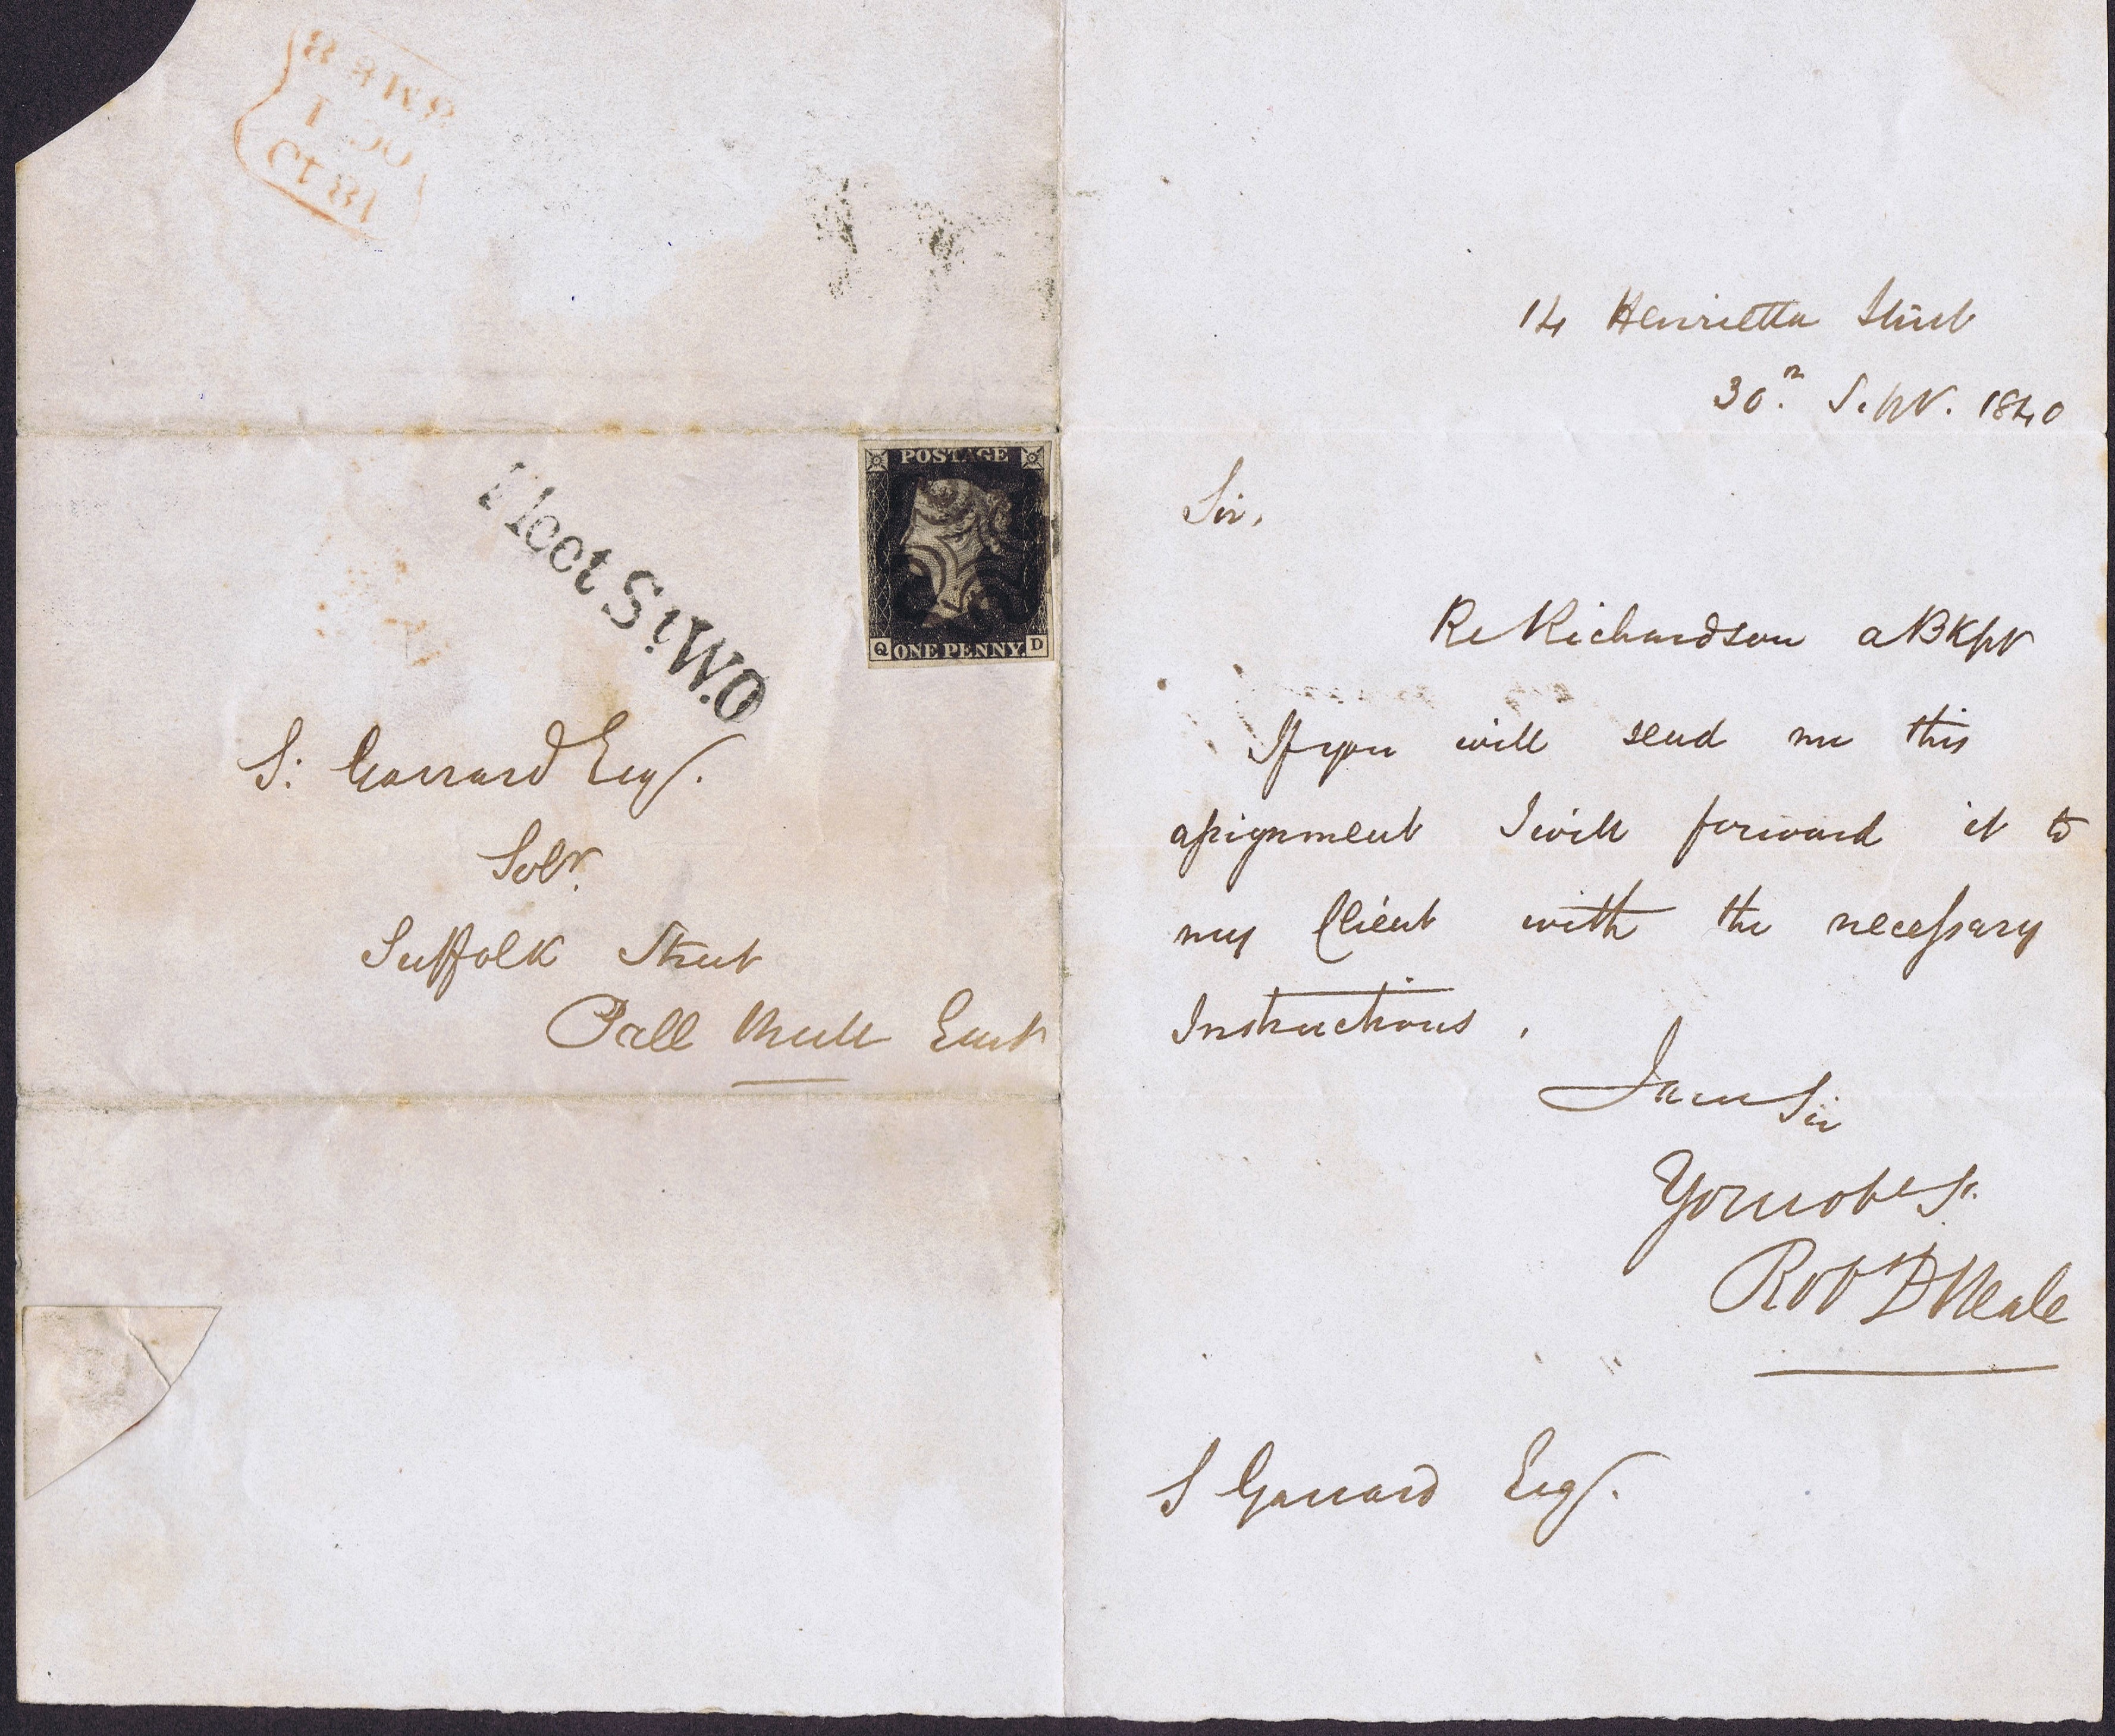 POSTAGE
Q ONE PENNY D
Fleet St. W.O
S: Garrard Esqr.
Solr.
Suffolk Street
Pall Mall East
14 Henrietta Street
30th. Sept. 1840
Sir,
Re Richardson a Bkpt
If you will send me this
assignment I will forward it to
my Client with the necessary
Instructions.
I am Sir
Your obt St.
Robt D Neale
S Garrard Esqr.